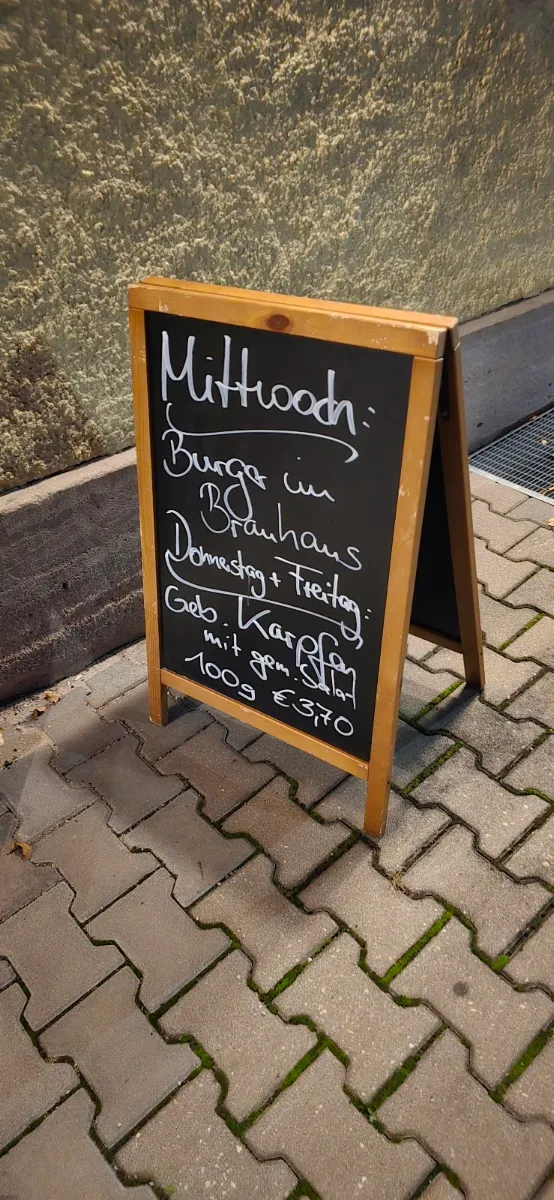 Mittwoch:
Burger im
Brauhaus
Donnerstag + Freitag:
Geb. Karpfen
mit gem. Salat
100g €3,70